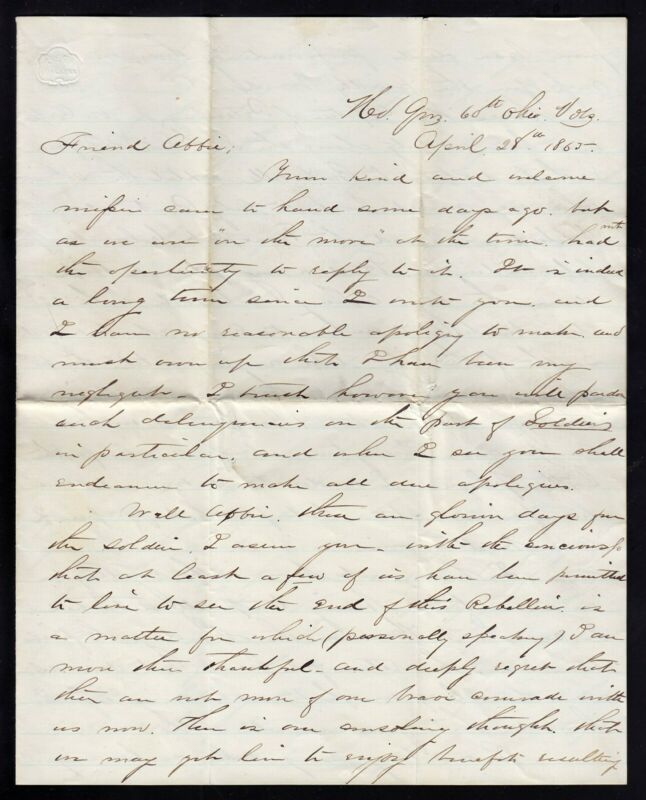 Hd. Qrs. 60th Ohio Vols.
April 28th 1865.
Friend Abbie;
Your kind and welcome
missive came to hand some days ago. but
as we were "on the move" at the time, had not
the oportunity to reply to it. It is indeed
a long time since I wrote you. and
I have no reasonable apoligy to make and
must own up that I have been very
negligent - I trust however you will pardon
such delinquencies on the part of Soldiers
in particular, and when I see you shall
endeavor to make all due apoligies.
Well Abbie, these are glorious days for
the soldier, I assure you - with the
that at least a few of us have been permitted
to live to see the End of this Rebellion. is
a matter for which (personally speaking) I am
more than thankful - and deeply regret that
there are not more of our brave comrade with
us now. There is one consoling thought. that
we may yet live to enjoy benefits resulting